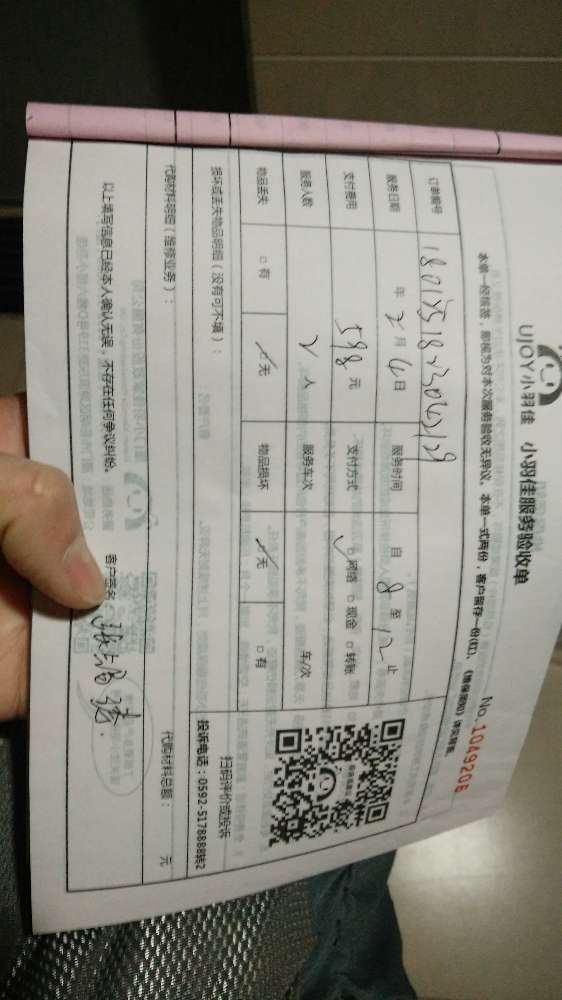 UJOY小羽佳 小羽佳服务验收单
No.1049206
本单一经核签，即视为对本次服务验收无异议。本单一式两份，客户留存一份(红)。
订单编号
服务日期 年 2 月 4 日 服务时间 自 8 至 12 止
支付费用 598 元 支付方式 网络 现金 转账
服务人数 2 人 服务车次 车/次
物品丢失 有 无 物品损坏 无 有
扫码评价或投诉
损坏或丢失物品明细（没有可不填）： 投诉电话：0592-5178888转2
代购材料明细（维修业务）： 代购材料总额： 元
以上填写信息已经本人确认无误，不存在任何争议纠纷。 客户签名